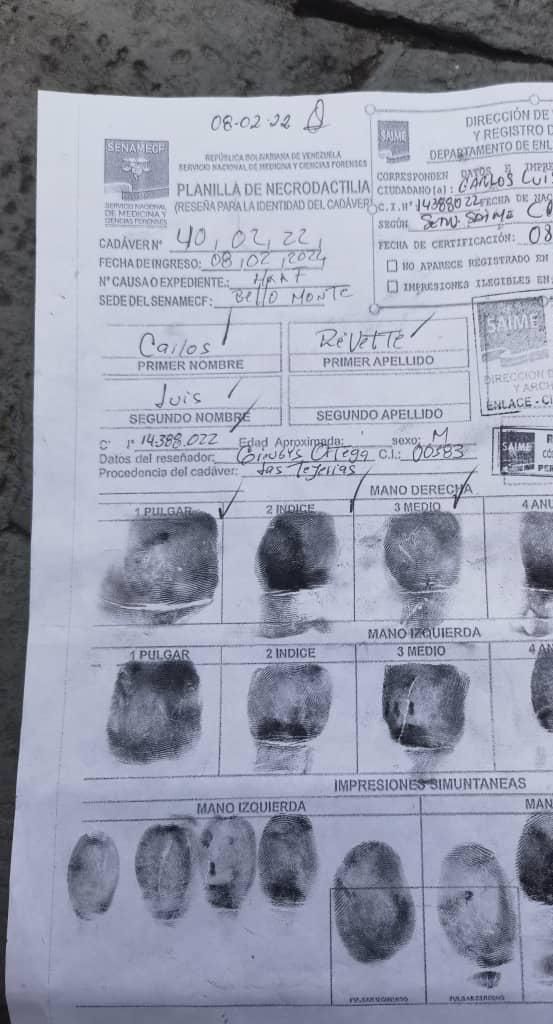 08-02-22
SENAMECF
SERVICIO NACIONAL
DE MEDICINA Y
CIENCIAS FORENSES
REPÚBLICA BOLIVARIANA DE VENEZUELA
SERVICIO NACIONAL DE MEDICINA Y CIENCIAS FORENSES
PLANILLA DE NECRODACTILIA
(RESEÑA PARA LA IDENTIDAD DEL CADÁVER)
CADÁVER N° 40, 02, 22,
FECHA DE INGRESO: 08, 02, 2022
N° CAUSA O EXPEDIENTE:
SEDE DEL SENAMECF: Bello Monte
SAIME
DIRECCIÓN DE
Y REGISTRO D
DEPARTAMENTO DE ENL
CORRESPONDEN DATOS E IMPRE
CIUDADANO (a) : CARLOS LUIS
C.I.N° 14388022 FECHA DE NAC
SEGÚN
FECHA DE CERTIFICACIÓN: 08
NO APARECE REGISTRADO EN
IMPRESIONES ILEGIBLES EN:
SAIME
DIRECCIÓN D
Y ARCH
ENLACE - CI
Carlos
PRIMER NOMBRE
Revette
PRIMER APELLIDO
Luis
SEGUNDO NOMBRE
SEGUNDO APELLIDO
14.388.022 Edad Aproximada: sexo: M
Datos del reseñador: Ortega C.I.: 00383
Procedencia del cadáver: Las Tejerias
SAIME
MANO DERECHA
1 PULGAR 2 INDICE 3 MEDIO 4 ANU
MANO IZQUIERDA
1 PULGAR 2 INDICE 3 MEDIO 4 AN
IMPRESIONES SIMUNTANEAS
MANO IZQUIERDA MAN
PULGAR IZQUIERDO PULGAR DERECHO